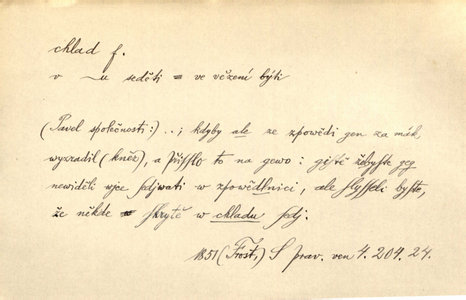 chlad f.
v —u seděti = ve vězení býti
(Pavel společnosti:) ..; kdyby ale ze zpowědi gen za mák
wyzradil (kněz), a přissto to na gewo: gistě žebyste geg
newiděli wjce sedjwati w zpowědlnici, ale slysseli byste,
že někde skrytě w chladu sedj.
1851 (Frost,) S prav. ven 4. 204. 24.